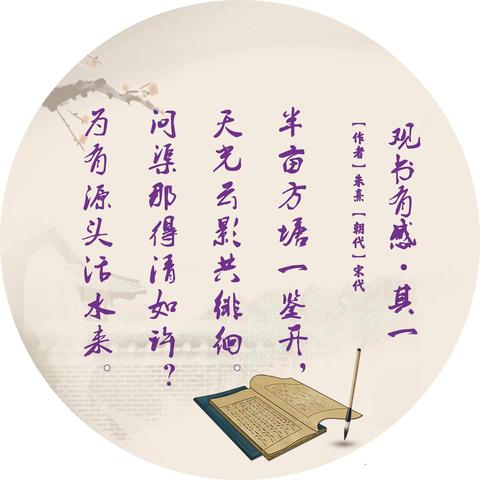 观书有感·其一
【作者】朱熹【朝代】宋代
半亩方塘一鉴开，
天光云影共徘徊。
问渠那得清如许？
为有源头活水来。